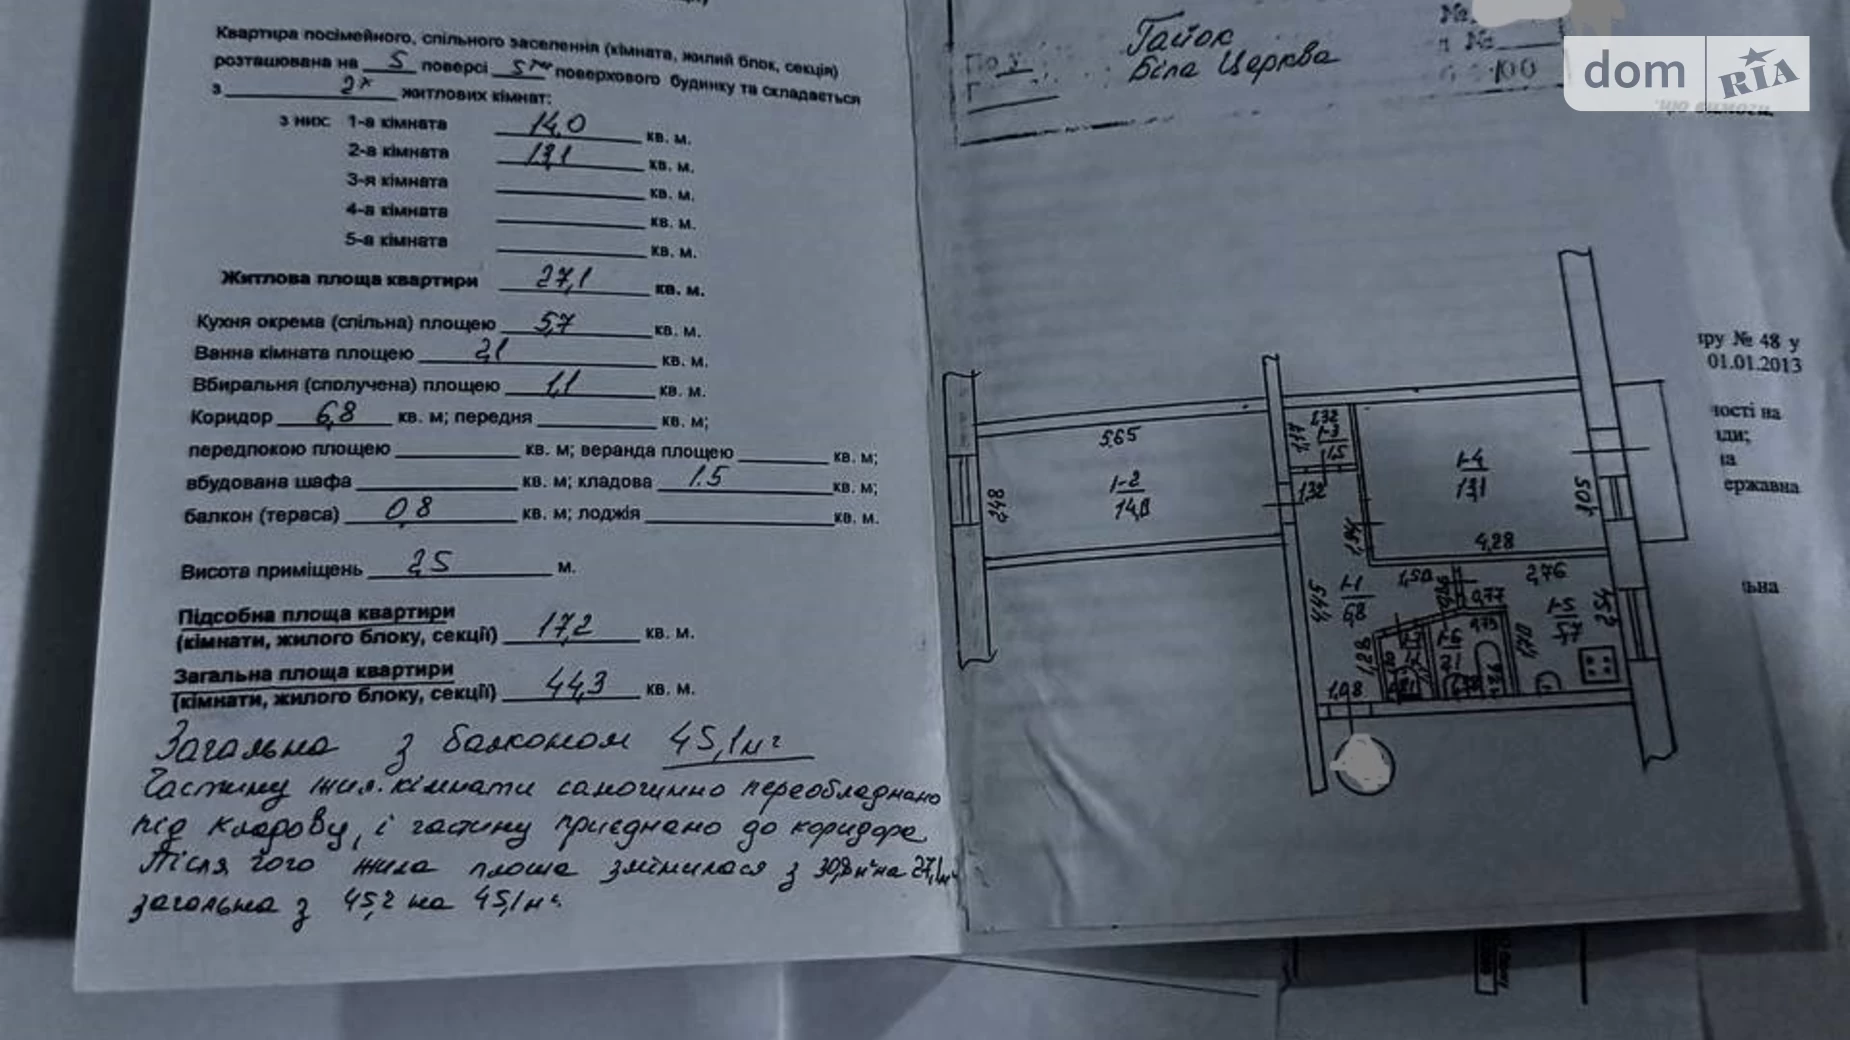 Квартира посімейного, спільного заселення (кімната, жилий блок, секція)
розташована на 5 поверсі 5 ти поверхового будинку та складається
з 2х житлових кімнат:
з них: 1-а кімната 14,0 кв. м.
2-а кімната 13,1 кв. м.
3-я кімната кв. м.
4-а кімната кв. м.
5-а кімната кв. м.
Житлова площа квартири 27,1 кв. м.
Кухня окрема (спільна) площею 5,7 кв. м.
Ванна кімната площею 2,1 кв. м.
Вбиральня (сполучена) площею 1,1 кв. м.
Коридор 6,8 кв. м; передня кв. м;
передпокою площею кв. м; веранда площею кв. м;
вбудована шафа кв. м; кладова 1.5 кв. м;
балкон (тераса) 0,8 кв. м; лоджія кв. м.
Висота приміщень 2,5 м.
Підсобна площа квартири
(кімнати, жилого блоку, секції) 17,2 кв. м.
Загальна площа квартири
(кімнати, жилого блоку, секції) 44,3 кв. м.
Загальна з балконом 45,1 м²
Частину жил. кімнати самочинно переобладнано
під кладову, і частину приєднано до коридора
Після чого жила площа змінилася з 30,8 м² на 27,1 м²
загальна з 45,2 на 45,1 м².
Гайок
Біла Церква
№
100
dom RIA
цю вимоги.
ру № 48 у
01.01.2013
ності на
ди;
а
ержавна
ьна
5,65
2,48
1-2
14,0
1,32
1,17
1-3
1.5
1,32
1-4
13,1
3,05
4,28
1,94
1,50
2,76
4,45
1-1
6,8
0,77
1-5
5,7
2,54
1,28
0,75
1,70
1,08